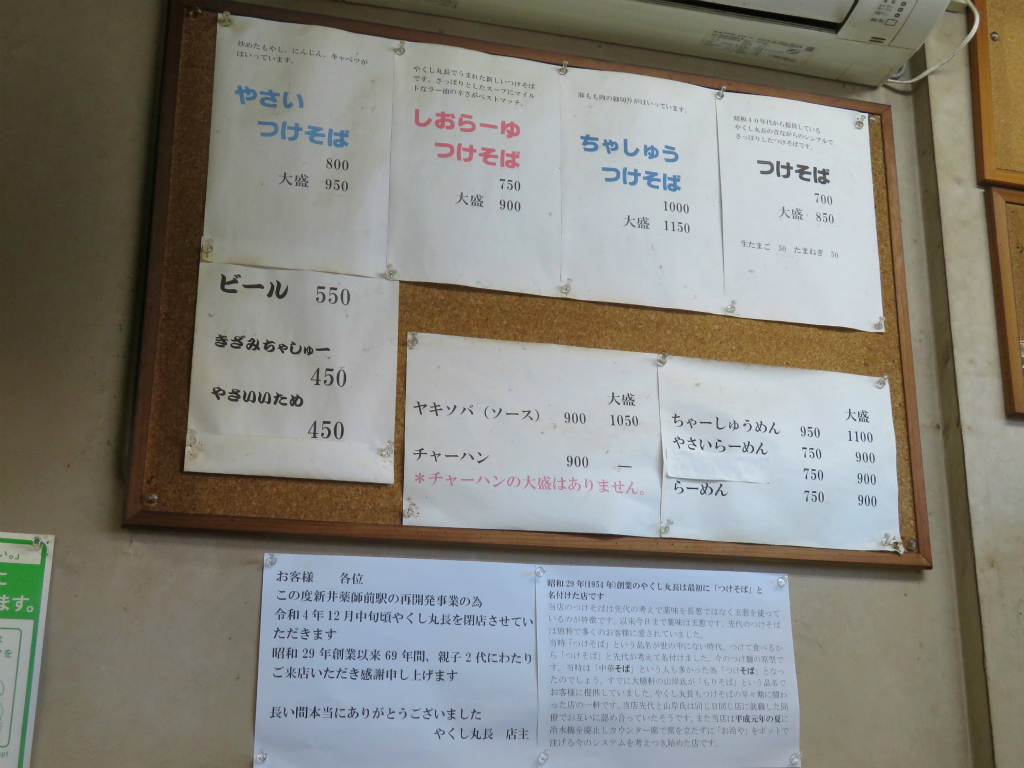 炒めたもやし、にんじん、キャベツが
はいっています。
やさい
つけそば
800
大盛 950
やくし丸長でうまれた新しいつけそば
です。さっぱりとしたスープにマイル
ドなラー油の辛さがベストマッチ。
しおらーゆ
つけそば
750
大盛 900
豚もも肉の細切りがはいっています。
ちゃしゅう
つけそば
1000
大盛 1150
昭和40年代から提供している
やくし丸長の昔ながらのシンプルで
さっぱりしたつけそばです。
つけそば
700
大盛 850
生たまご 50 たまねぎ 50
ビール 550
きざみちゃしゅー
450
やさいいため
450
大盛
ヤキソバ（ソース） 900 1050
チャーハン 900 ―
＊チャーハンの大盛はありません。
大盛
ちゃーしゅうめん 950 1100
やさいらーめん 750 900
750 900
らーめん 750 900
お客様 各位
この度新井薬師前駅の再開発事業の為
令和4年12月中旬頃やくし丸長を閉店させてい
ただきます
昭和29年創業以来69年間、親子2代にわたり
ご来店いただき感謝申し上げます
長い間本当にありがとうございました
やくし丸長 店主
昭和29年(1954年)創業のやくし丸長は最初に「つけそば」と
名付けた店です
当店のつけそばは先代の考えで薬味を長葱ではなく玉葱を使って
いるのが特徴です。以来今日まで薬味は玉葱です。先代のつけそば
は独特で多くのお客様に愛されていました。
当時「つけそば」という品名が世の中にない時代、つけて食べるか
ら「つけそば」と先代が考えて名付けました。今のつけ麺の原型で
す。当時は「中華そば」という人も多かった為「つけそば」となっ
たのでしょう。すでに大勝軒の山岸氏が「もりそば」という品名で
お客様に提供していました。やくし丸長もつけそばの早々期に関わ
った店の一軒です。当店先代と山岸氏は同じ日同じ店に就職した同
僚でお互いに認め合っていたそうです。また当店は平成元年の夏に
冷水機を廃止しカウンター席で席を立たずに「お冷や」をポットで
注げる今のシステムを考えつき始めた店です。